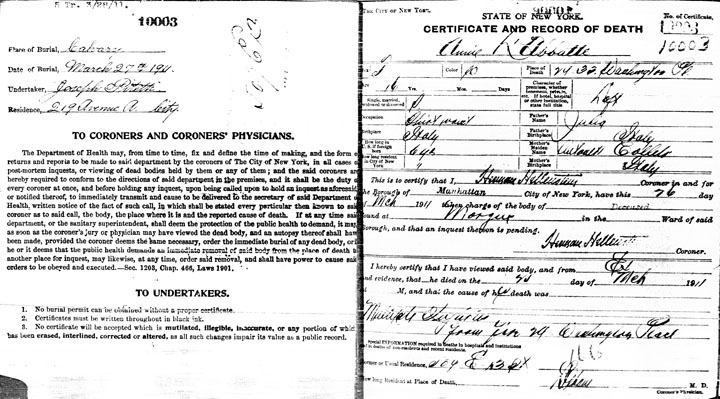 5 Tr. 3/28/11.
10003
Place of Burial, Calvary
Date of Burial, March 27th 1911
Undertaker, Joseph
Residence, 219 Avenue A. City
TO CORONERS AND CORONERS' PHYSICIANS.
The Department of Health may, from time to time, fix and define the time of making, and the form o
returns and reports to be made to said department by the coroners of The City of New York, in all cases o
post-mortem inquests, or viewing of dead bodies held by them or any of them; and the said coroners ar
hereby required to conform to the directions of said department in the premises, and it is shall be the duty o
every coroner at once, and before holding any inquest, upon being called upon to hold an inquest as aforesai
or notified thereof, to immediately transmit and cause to be delivered to the secretary of said Department o
Health, written notice of the fact of such call, in which shall be stated every particular then known to said
coroner as to said call, the body, the place where it is and the reported cause of death. If at any time said
department, or the sanitary superintendent, shall deem the protection of the public health to demand, it may
as soon as the coroner's jury or physician may have viewed the dead body, and an autopsy thereof shall hav
been made, provided the coroner deems the same necessary, order the immediate burial of any dead body, or
be or it deems that the public health demands an immediate removal of said body from the place of death to
another place for inquest, may likewise, at any time, order said removal, and shall have power to cause said
orders to be obeyed and executed.—Sec. 1203, Chap. 466, Laws 1901.
TO UNDERTAKERS.
1. No burial permit can be obtained without a proper certificate.
2. Certificates must be written throughout in black ink.
3. No certificate will be accepted which is mutilated, illegible, inaccurate, or any portion of which
has been erased, interlined, corrected or altered, as all such changes impair its value as a public record.
The City of New York.
STATE OF NEW YORK.
No. of Certificate,
CERTIFICATE AND RECORD OF DEATH
10003
Annie L'Abbate
Color W Place of Death 24 32 Washington Pl
16 Yrs. Mos. Days
Character of premises, whether tenement, private, etc. If hotel, hospital or other institution, state full title Loft
Single, married, S
Occupation Shirt waist Father's Name
Birthplace Italy Father's Birthplace Italy
How long in U. S. if foreign born Mother's Maiden Name
How long resident in New York City " Mother's Birthplace Italy
This is to certify that I, Herman Hellenstein Coroner in and for
the Borough of Manhattan City of New York, have this 26 day
of Mch 1911 taken charge of the body of Deceased
found at Morgue in the Ward of said
Borough, and that an inquest thereon is pending.
Coroner.
I hereby certify that I have viewed said body, and from Ex
and evidence, that he died on the 25 day of Mch 1911
at M, and that the cause of h death was
Multiple Injuries
Washington Place
Special INFORMATION required in deaths in hospitals and institutions
and in deaths of non-residents and recent residents.
Former or Usual Residence, 509 E 13 St
How long Resident at Place of Death, M. D.
Coroner's Physician.